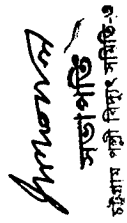 সভাপতি
চট্টগ্রাম পল্লী বিদ্যুৎ সমিতি-৩